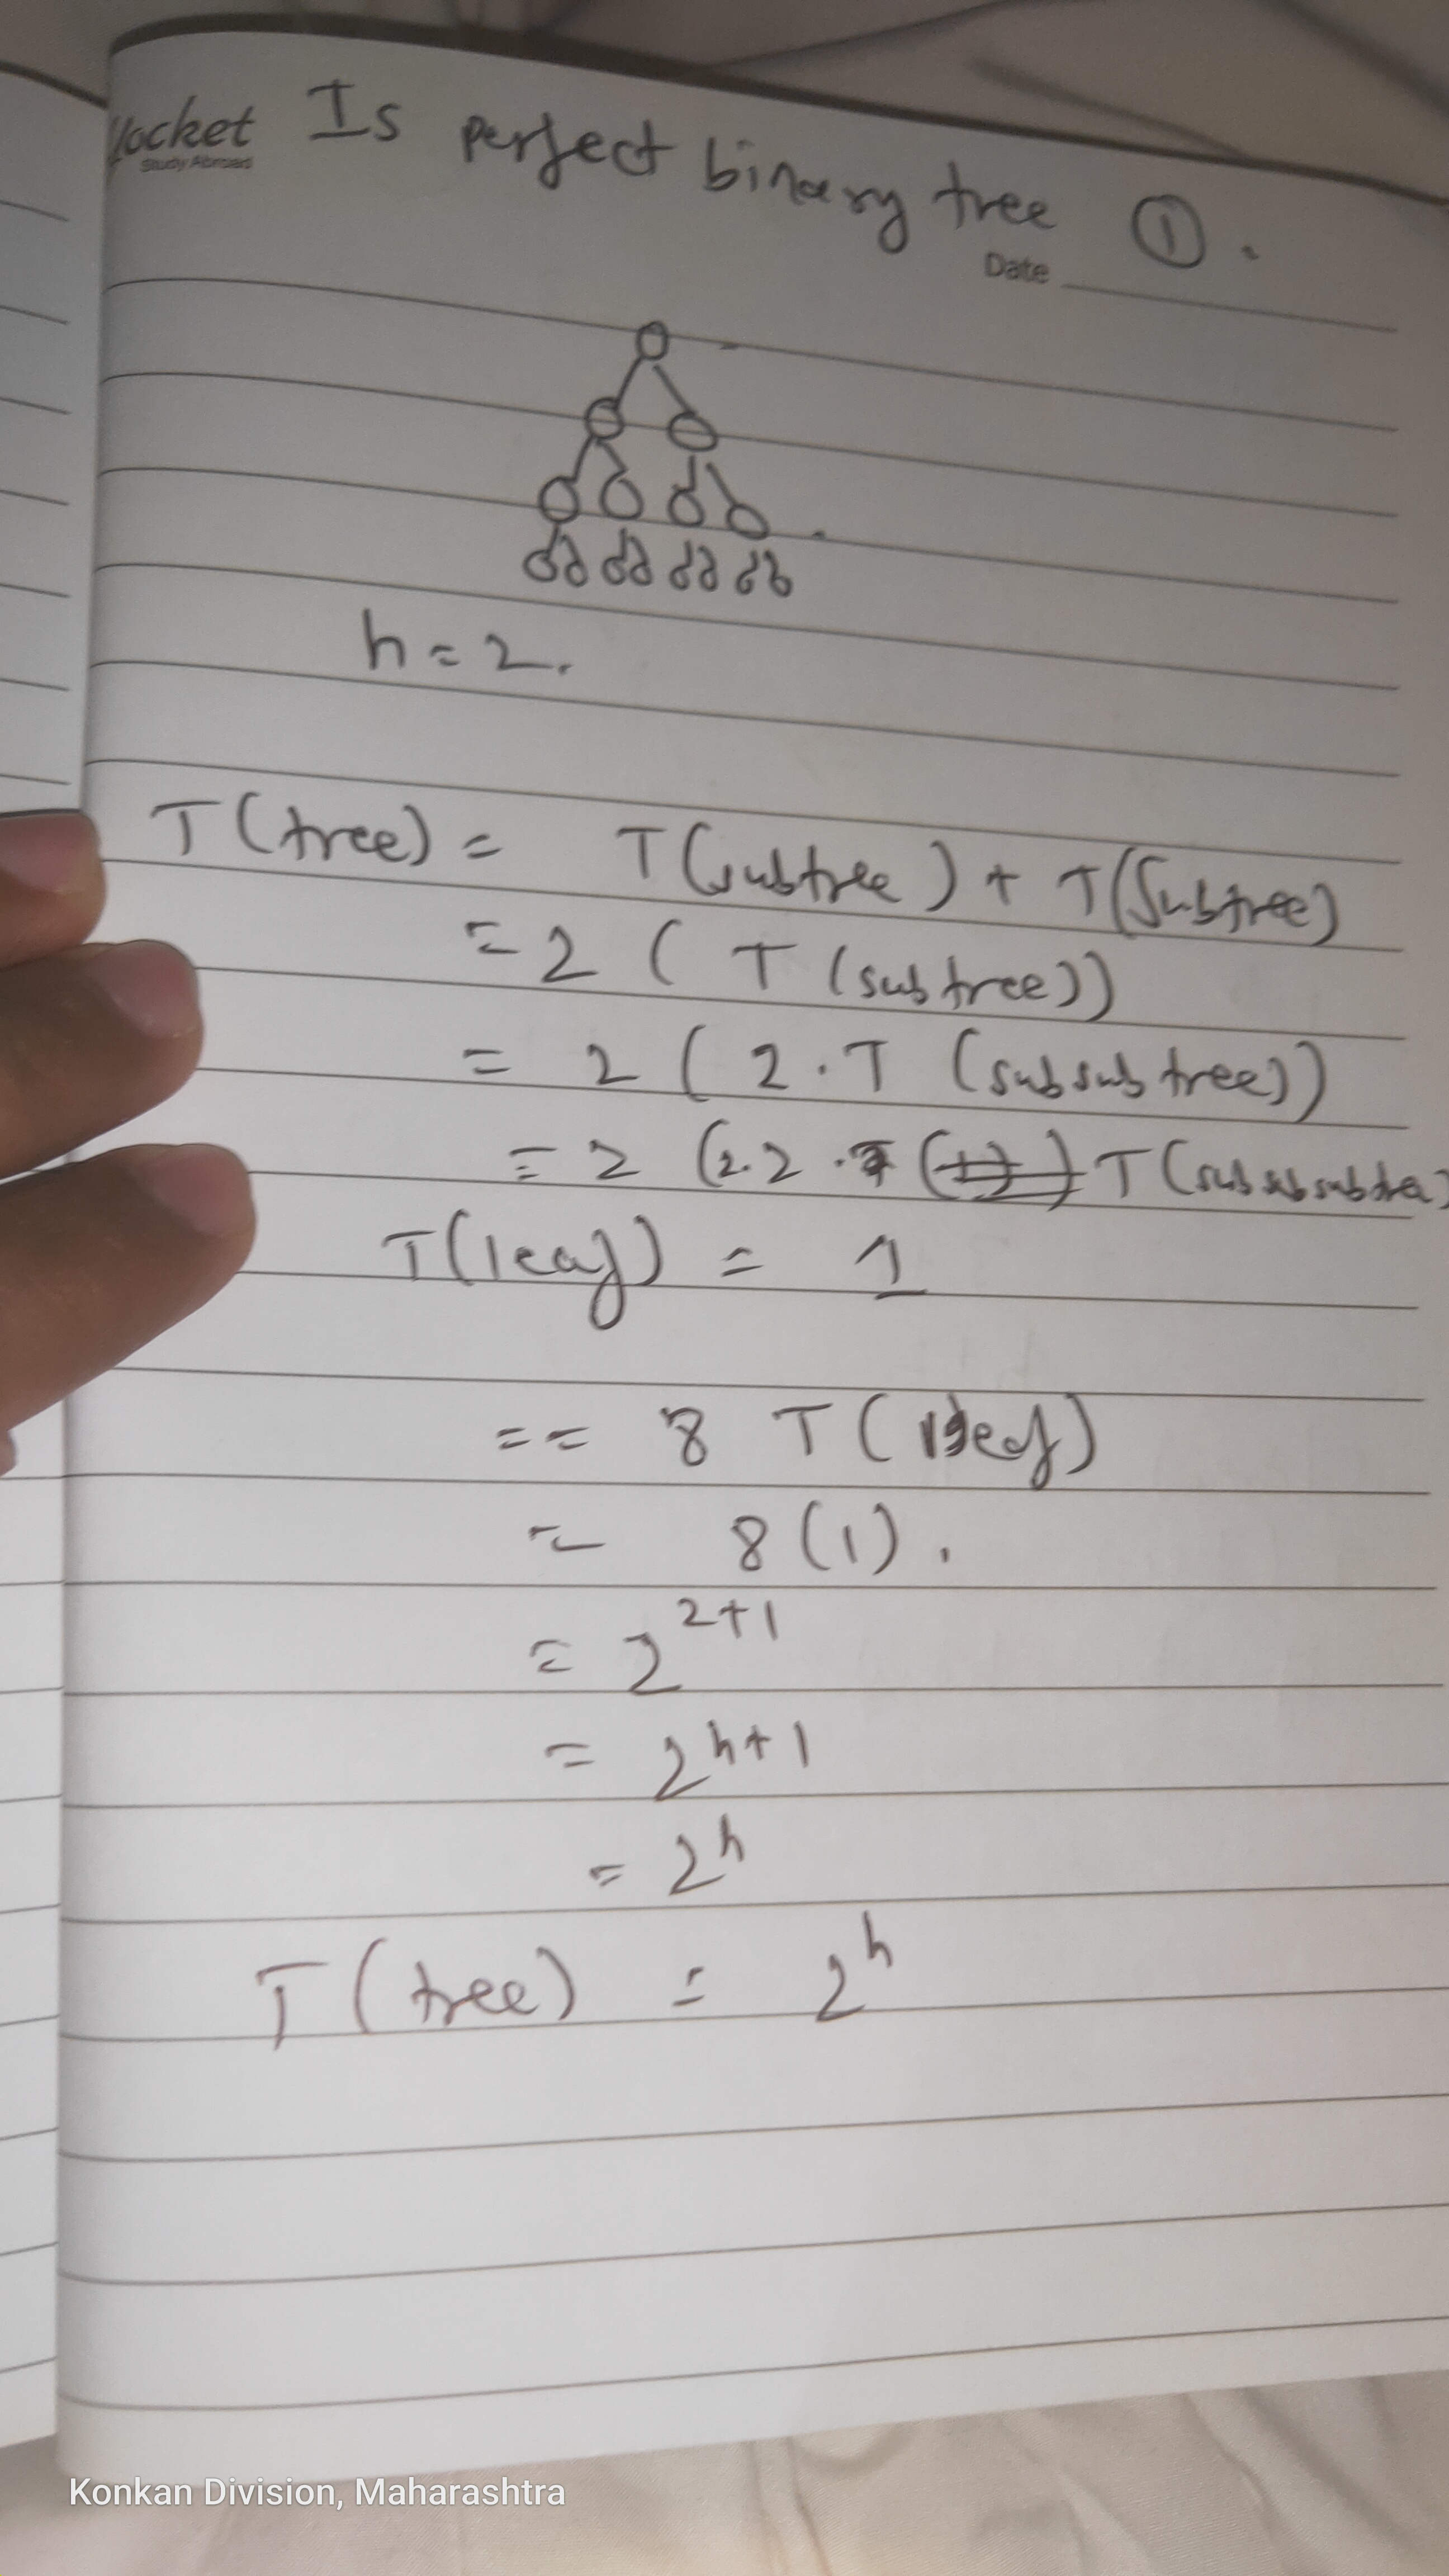 Yocket Is perfect binary tree ①.
Study Abroad
Date
h = 2.
T(tree) = T(subtree) + T(Subtree)
= 2 ( T (subtree))
= 2 ( 2 . T (subsubtree))
= 2 (2.2 . T(subsubsubtree)
T(leaf) = 1
== 8 T(leaf)
= 8(1).
= 2^{2+1}
= 2^{h+1}
= 2^h
T(tree) = 2^h
Konkan Division, Maharashtra